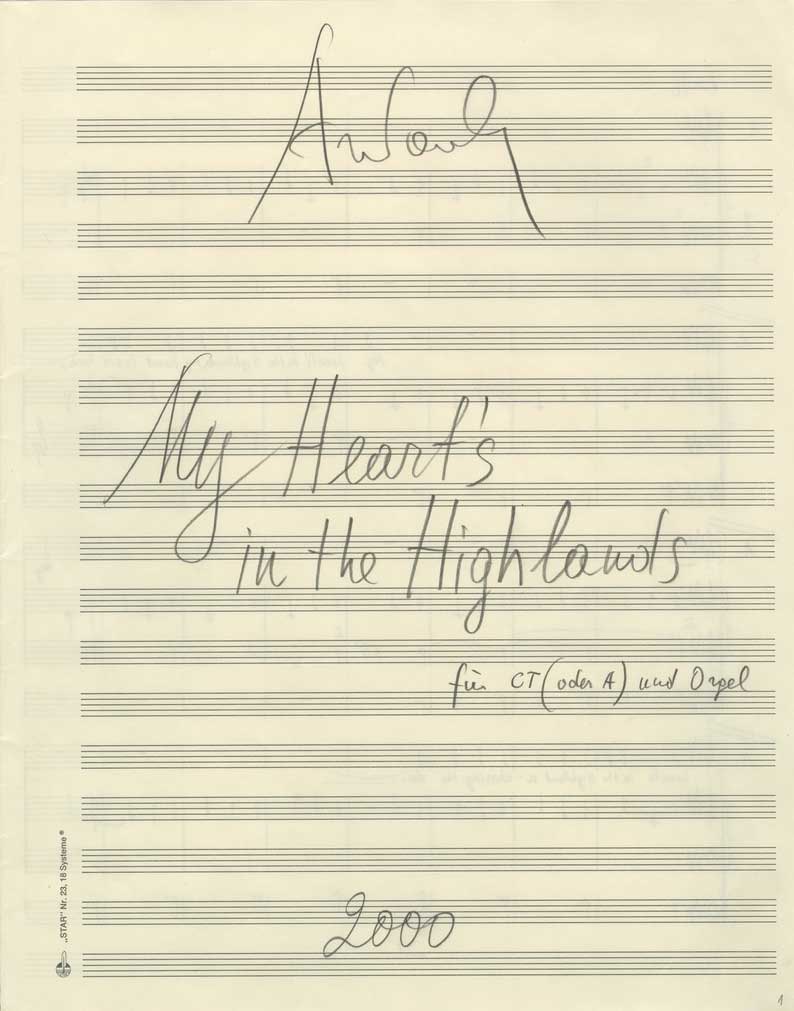 My Heart's
in the Highlands
für CT (oder A) und Orgel
„STAR“ Nr. 23, 18 Systeme ®
2000
1